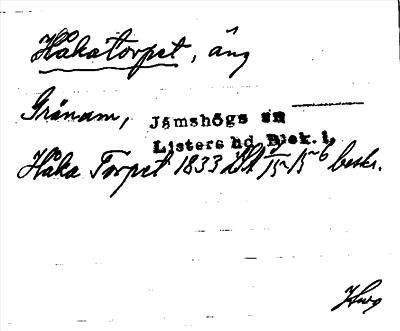 Håkatorpet, äng
Grånum,
Jämshögs sn
Listers hd Blek. l.
Håka Torpet 1833 beskr.